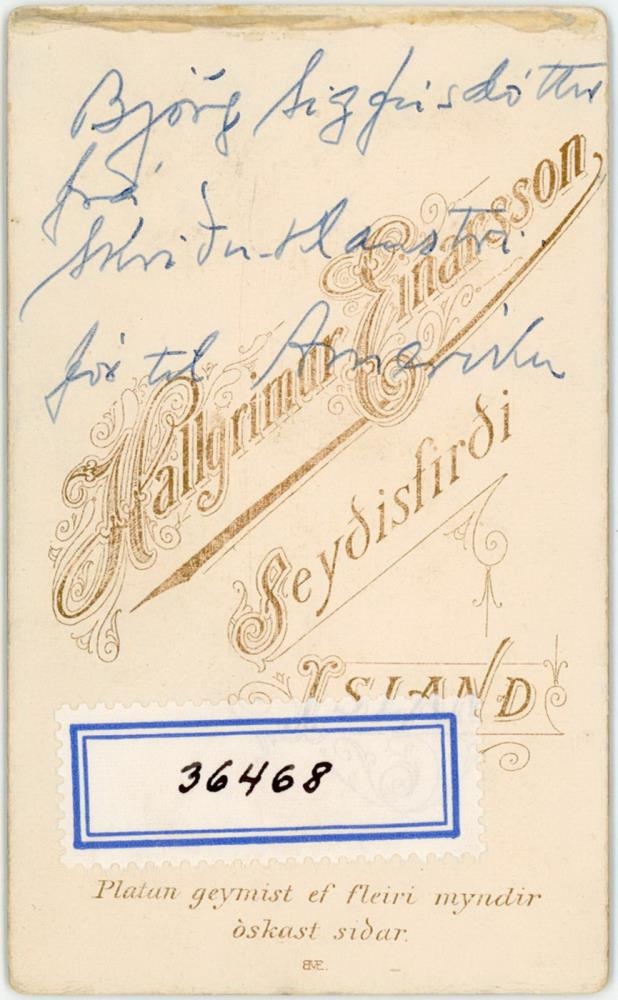 Björg Sigfúsdóttir
frá
Skriðu-Klaustri.
fór til Ameriku
Hallgrimur Einarsson
Seyðisfirði
ISLAND
36468
Platan geymist ef fleiri myndir
òskast siðar.